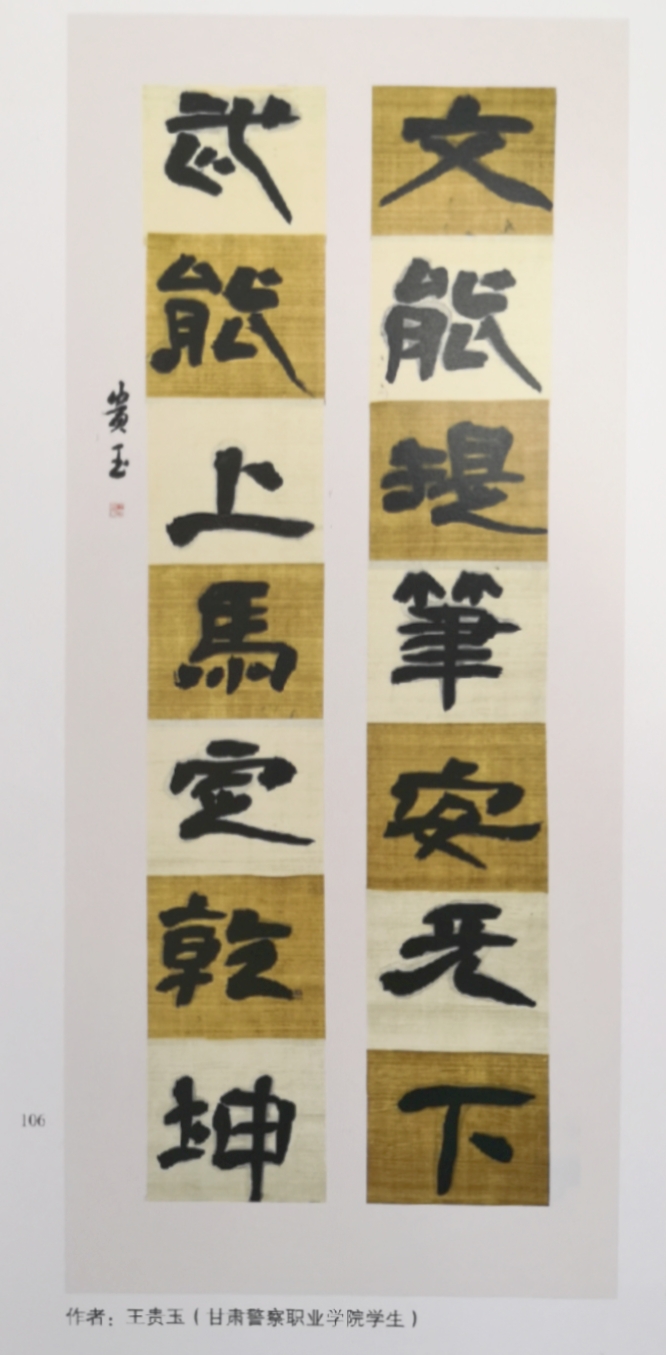 文能提筆安天下
武能上馬定乾坤
貴玉
106
作者：王贵玉（甘肃警察职业学院学生）